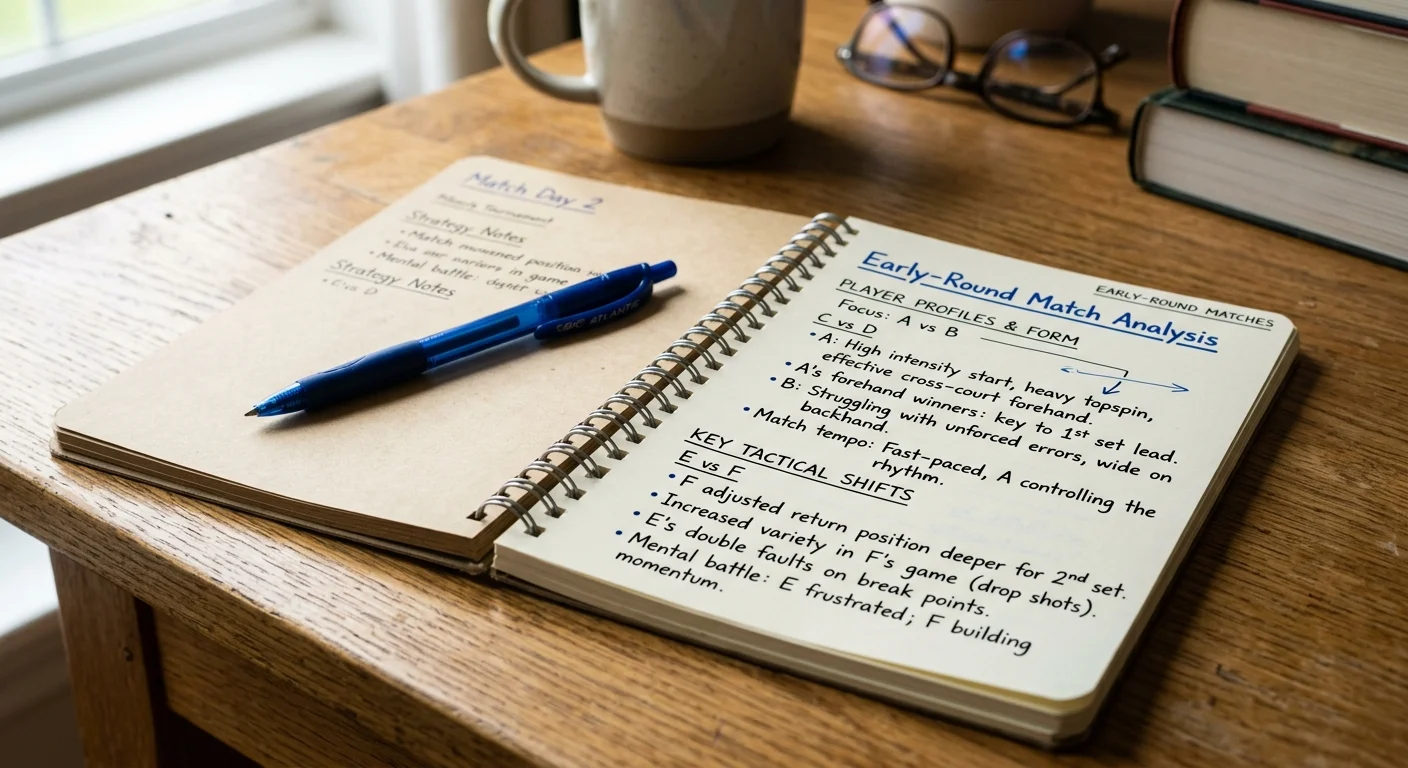 Match Day 2
Tournament
Strategy Notes
• Match position
• in game
• Mental battle:
Strategy Notes
• C vs D
ATLANTIS
EARLY-ROUND MATCHES
Early-Round Match Analysis
PLAYER PROFILES & FORM
Focus: A vs B
C vs D
• A: High intensity start, heavy topspin,
effective cross-court forehand.
• A's forehand winners: key to 1st set lead.
• B: Struggling with unforced errors, wide on
backhand.
• Match tempo: Fast-paced, A controlling the
rhythm.
KEY TACTICAL SHIFTS
E vs F
• F adjusted return position deeper for 2nd set.
• Increased variety in F's game (drop shots).
• E's double faults on break points.
• Mental battle: E frustrated; F building
momentum.